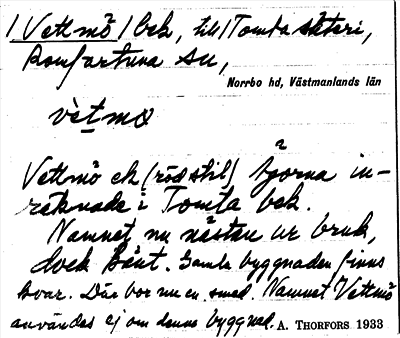 / Vettmö / bek, till / Tomta säteri,
Romfartuna sn,
Norrbo hd, Västmanlands län
vètmo
Vettmö ek (röd stil) äro
inräknade i Tomta bek.
Namnet nu nästan ur bruk,
dock känt. Gamla byggnaden finns
kvar. Där bor nu en smed. Namnet Vettmö
användes ej om denna byggnad. A. THORFORS 1933